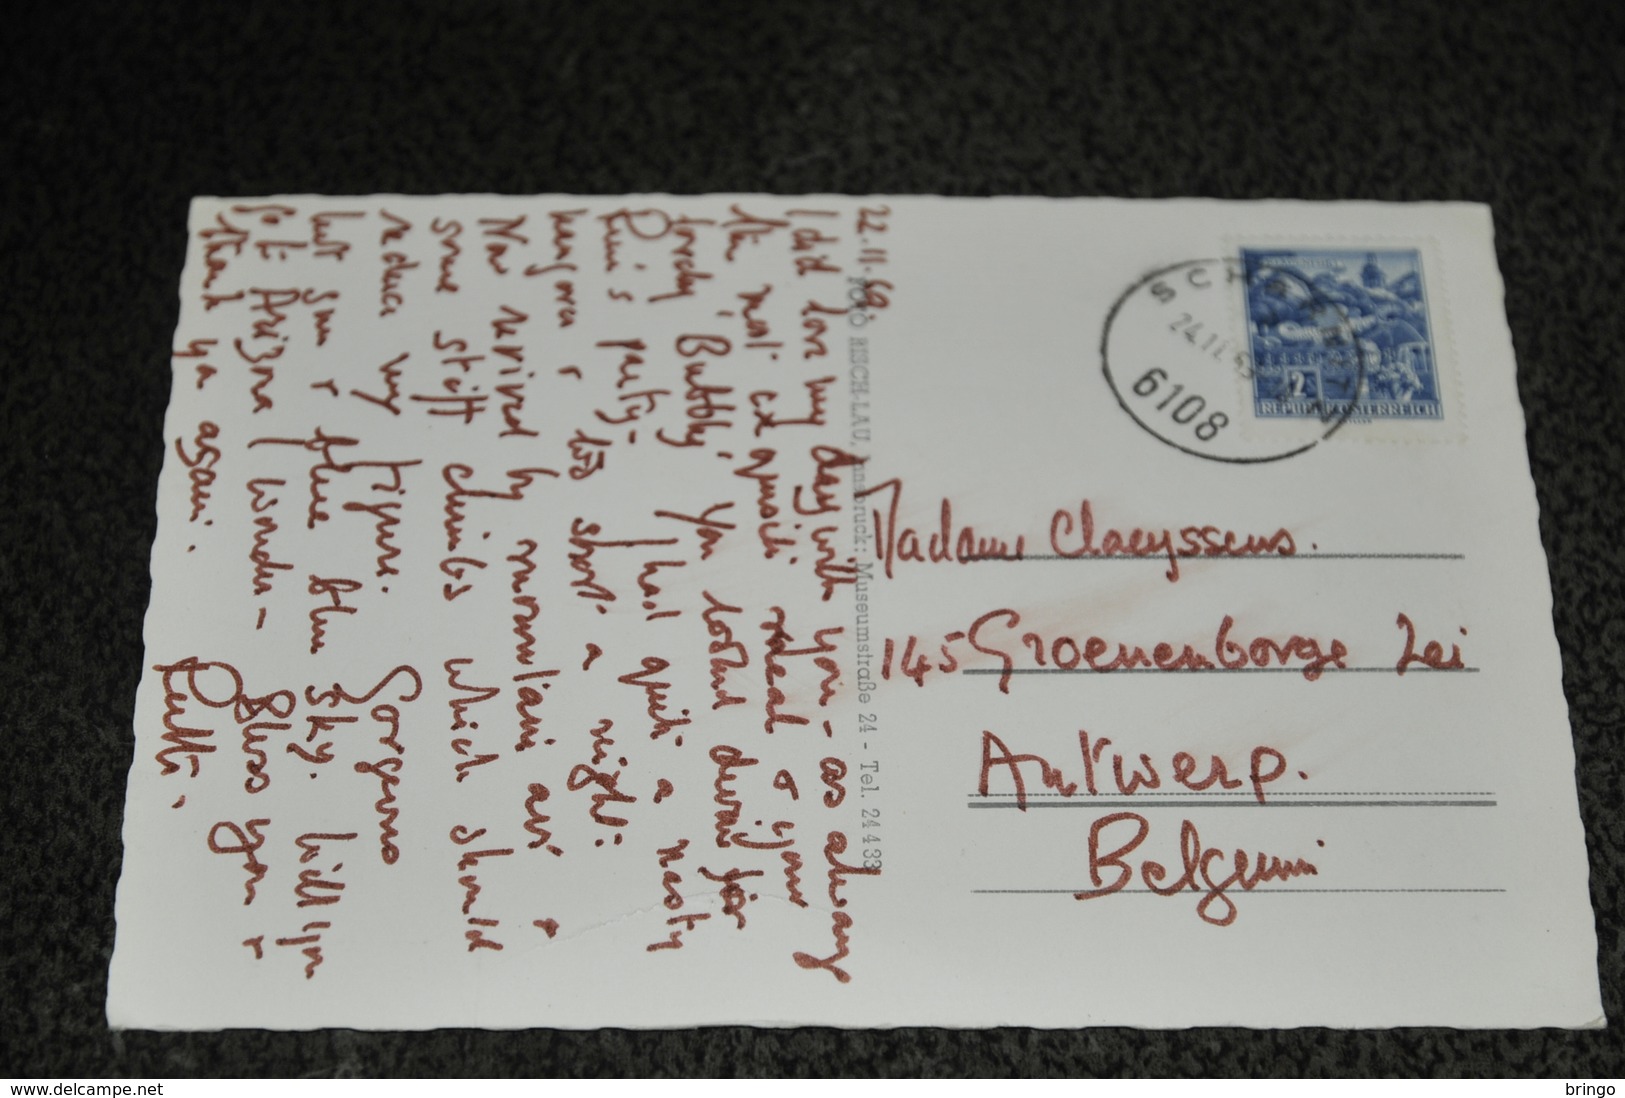 22.11.69.
I did love my day with you - as always
the most exquisite meal & your
lovely 'Bubbly'. You looked divine for
party - I had quite a nasty
hungover & his short a night:
Now revived by mountain air &
some stiff climbs which should
reduce my figure. Gorgeous
hot sun & blue blue sky. Will you
to Arizona I wonder - Bless you &
thank ya again.
FOTO RISCH-LAU, Innsbruck: Museumstraße 24 - Tel. 24 4 33
REPUBLIK ÖSTERREICH
2
24.11.69
6108
Madame Claeyssens.
145 Groenenborge Lei
Antwerp.
Belgium
www.delcampe.net
bringo